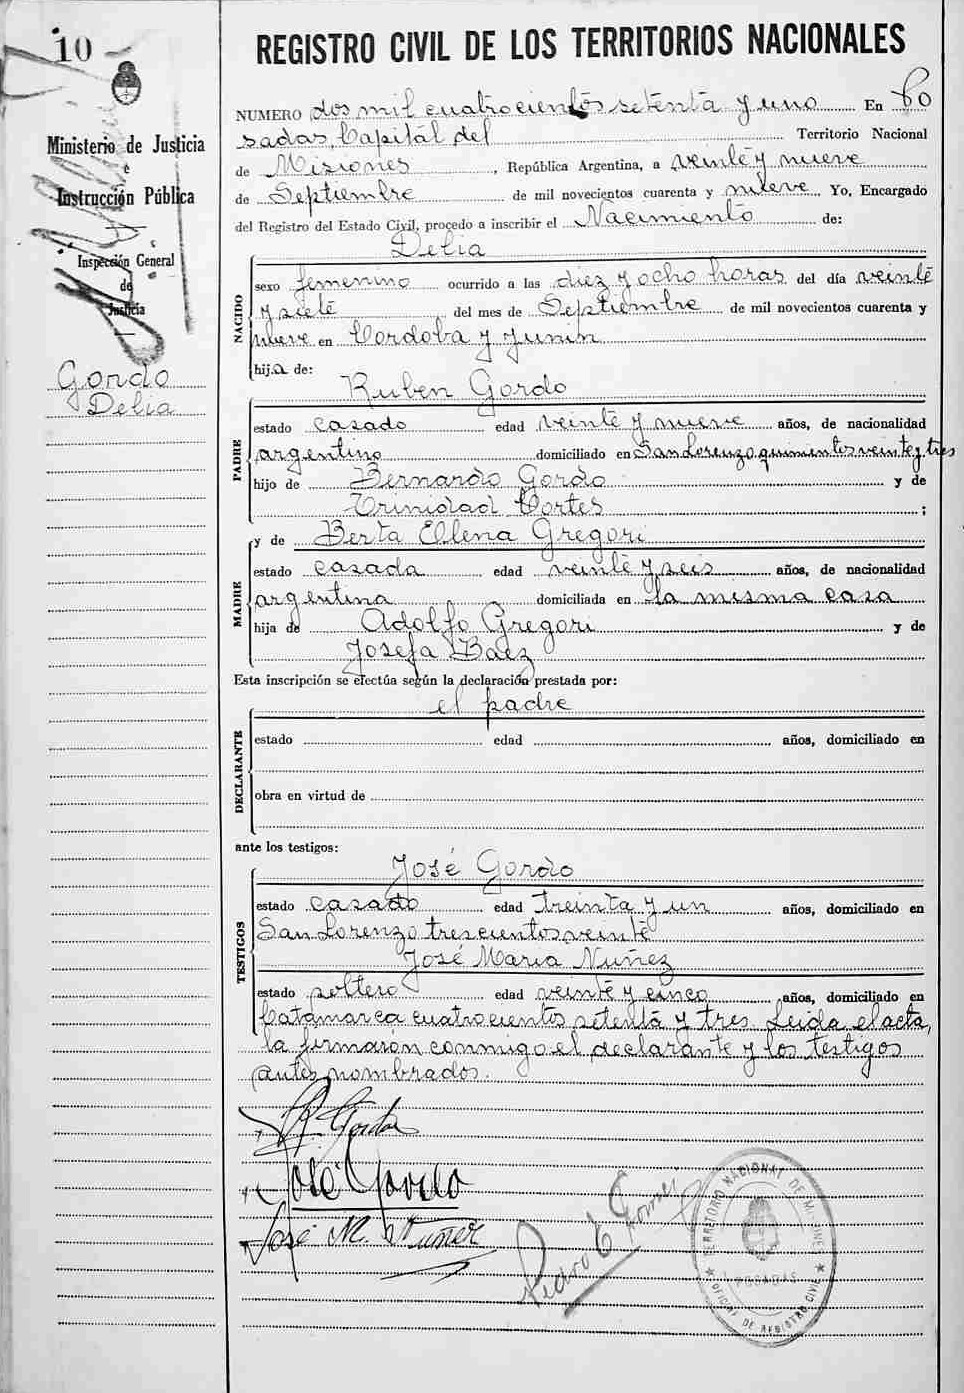 10
Ministerio de Justicia
e
Instrucción Pública
Inspección General
de
Justicia
Gordo
Delia
REGISTRO CIVIL DE LOS TERRITORIOS NACIONALES
NUMERO dos mil cuatrocientos setenta y uno En Po
sadas, Capital del Territorio Nacional
de Misiones, República Argentina, a veinte y nueve
de Septiembre de mil novecientos cuarenta y nueve Yo, Encargado
del Registro del Estado Civil, procedo a inscribir el Nacimiento de:
Delia
NACIDO
sexo femenino ocurrido a las diez y ocho horas del día veinte
y siete del mes de Septiembre de mil novecientos cuarenta y
nueve en Cordoba y Junin
hija de:
Ruben Gordo
PADRE
estado casado edad veinte y nueve años, de nacionalidad
argentino domiciliado en San Lorenzo quinientos veinte y tres
hijo de Bernardo Gordo y de
Trinidad Cortes ;
y de Berta Ellena Gregori
MADRE
estado casada edad veinte y seis años, de nacionalidad
argentina domiciliada en la misma casa
hija de Adolfo Gregori y de
Josefa Baez
Esta inscripción se efectúa según la declaración prestada por:
el padre
DECLARANTE
estado edad años, domiciliado en
obra en virtud de
ante los testigos:
José Gordo
TESTIGOS
estado casado edad treinta y un años, domiciliado en
San Lorenzo trescientos veinte
José Maria Nuñez
estado soltero edad veinte y cinco años, domiciliado en
Catamarca cuatrocientos setenta y tres. Leida el acta,
la firmaron conmigo el declarante y los testigos
antes nombrados.
R. Gordo
José Gordo
José M. Nuñez
Pedro E. Gomez
TERRITORIO NACIONAL DE MISIONES
POSADAS
OFICINA DE REGISTRO CIVIL